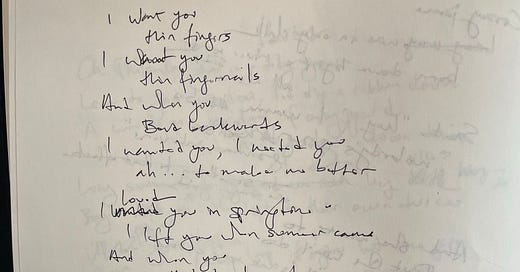 I want you
thin fingers
I want you
thin fingernails
And when you
Bend backwards
I wanted you, I needed you
ah... to make me better
loved
I you in springtime
I left you when summer came
And when you